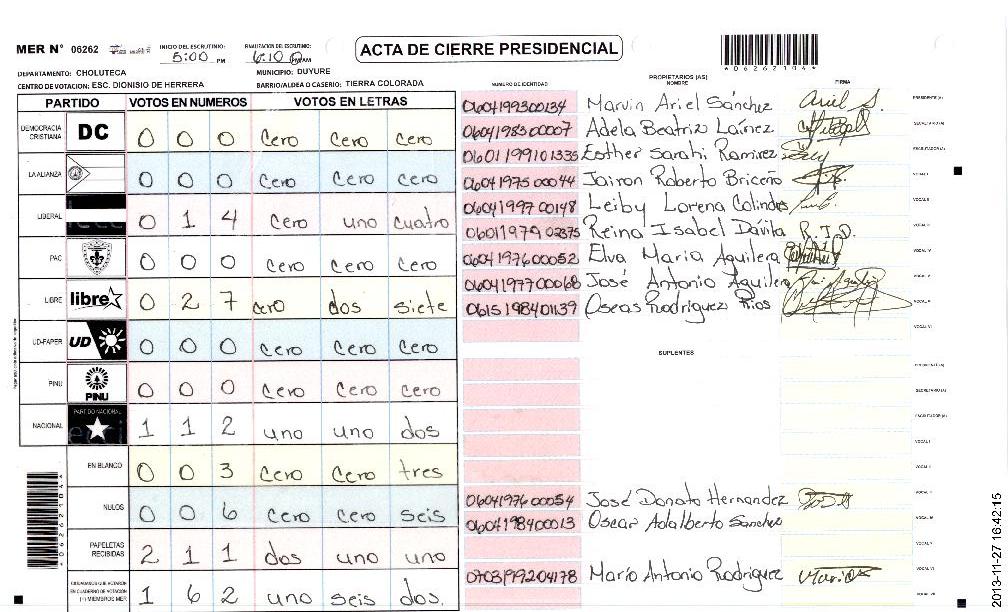 MER N° 06262 INICIO DEL ESCRUTINIO: 5:00 PM FINALIZACION DEL ESCRUTINIO: 6:10 PM/AM ACTA DE CIERRE PRESIDENCIAL *0626210 4*
DEPARTAMENTO: CHOLUTECA MUNICIPIO: DUYURE
CENTRO DE VOTACION: ESC. DIONISIO DE HERRERA BARRIO/ALDEA O CASERIO: TIERRA COLORADA
NUMERO DE IDENTIDAD PROPIETARIOS (AS) NOMBRE FIRMA
PARTIDO VOTOS EN NUMEROS VOTOS EN LETRAS
DEMOCRACIA CRISTIANA DC 0 0 0 cero cero cero
LA ALIANZA 0 0 0 cero cero cero
LIBERAL 0 1 4 cero uno cuatro
PAC 0 0 0 cero cero cero
LIBRE libre 0 2 7 cero dos siete
UD-FAPER UD 0 0 0 cero cero cero
PINU PINU 0 0 0 cero cero cero
NACIONAL PARTIDO NACIONAL 1 1 2 uno uno dos
EN BLANCO 0 0 3 cero cero tres
NULOS 0 0 6 cero cero seis
PAPELETAS RECIBIDAS 2 1 1 dos uno uno
CIUDADANOS QUE VOTARON EN CUADERNO DE VOTACION (+) MIEMBROS MER 1 6 2 uno seis dos.
0604199300134 Marvin Ariel Sánchez Ariel S. PRESIDENTE(A)
0604198300007 Adela Beatriz Laínez SECRETARIO(A)
0601199101335 Esther Sarahi Ramirez ESCRUTADOR(A)
0604197500044 Jairon Roberto Briceño VOCAL I
0604199700148 Leiby Lorena Colindres VOCAL II
0601197902375 Reina Isabel Dávila R.I.D. VOCAL III
0604197600052 Elva Maria Aguilera VOCAL IV
0604197700068 José Antonio Aguilera VOCAL V
0615198401139 Oseas Rodriguez Rios
VOCAL VII
SUPLENTES
PRESIDENTE(A)
SECRETARIO(A)
ESCRUTADOR(A)
VOCAL I
VOCAL II
0604197600054 José Donato Hernandez
0604198400013 Oscar Adalberto Sanchez
VOCAL V
0703197204178 Mario Antonio Rodriguez Marios VOCAL VI
2013-11-27 16:42:15